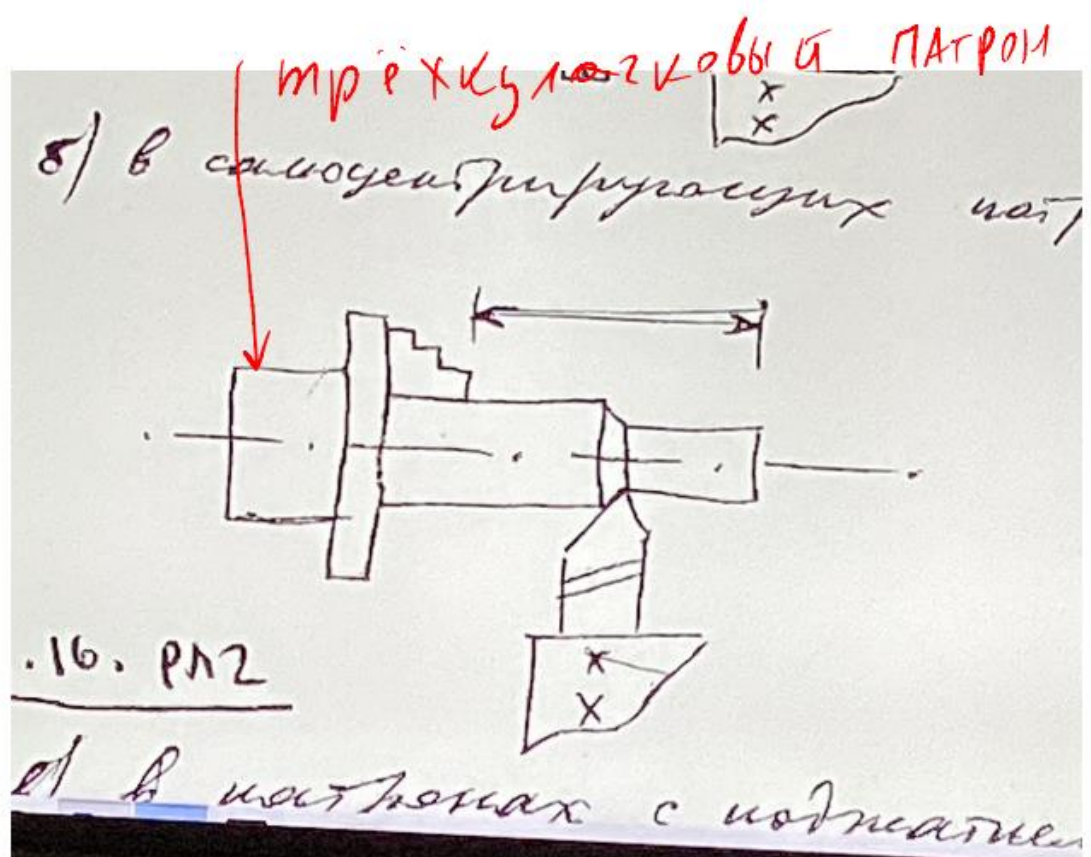 трёхкулачковый патрон
б) в самоцентрирующих пат
х
х
.16. РП2
х
х
в) в патронах с поджатием